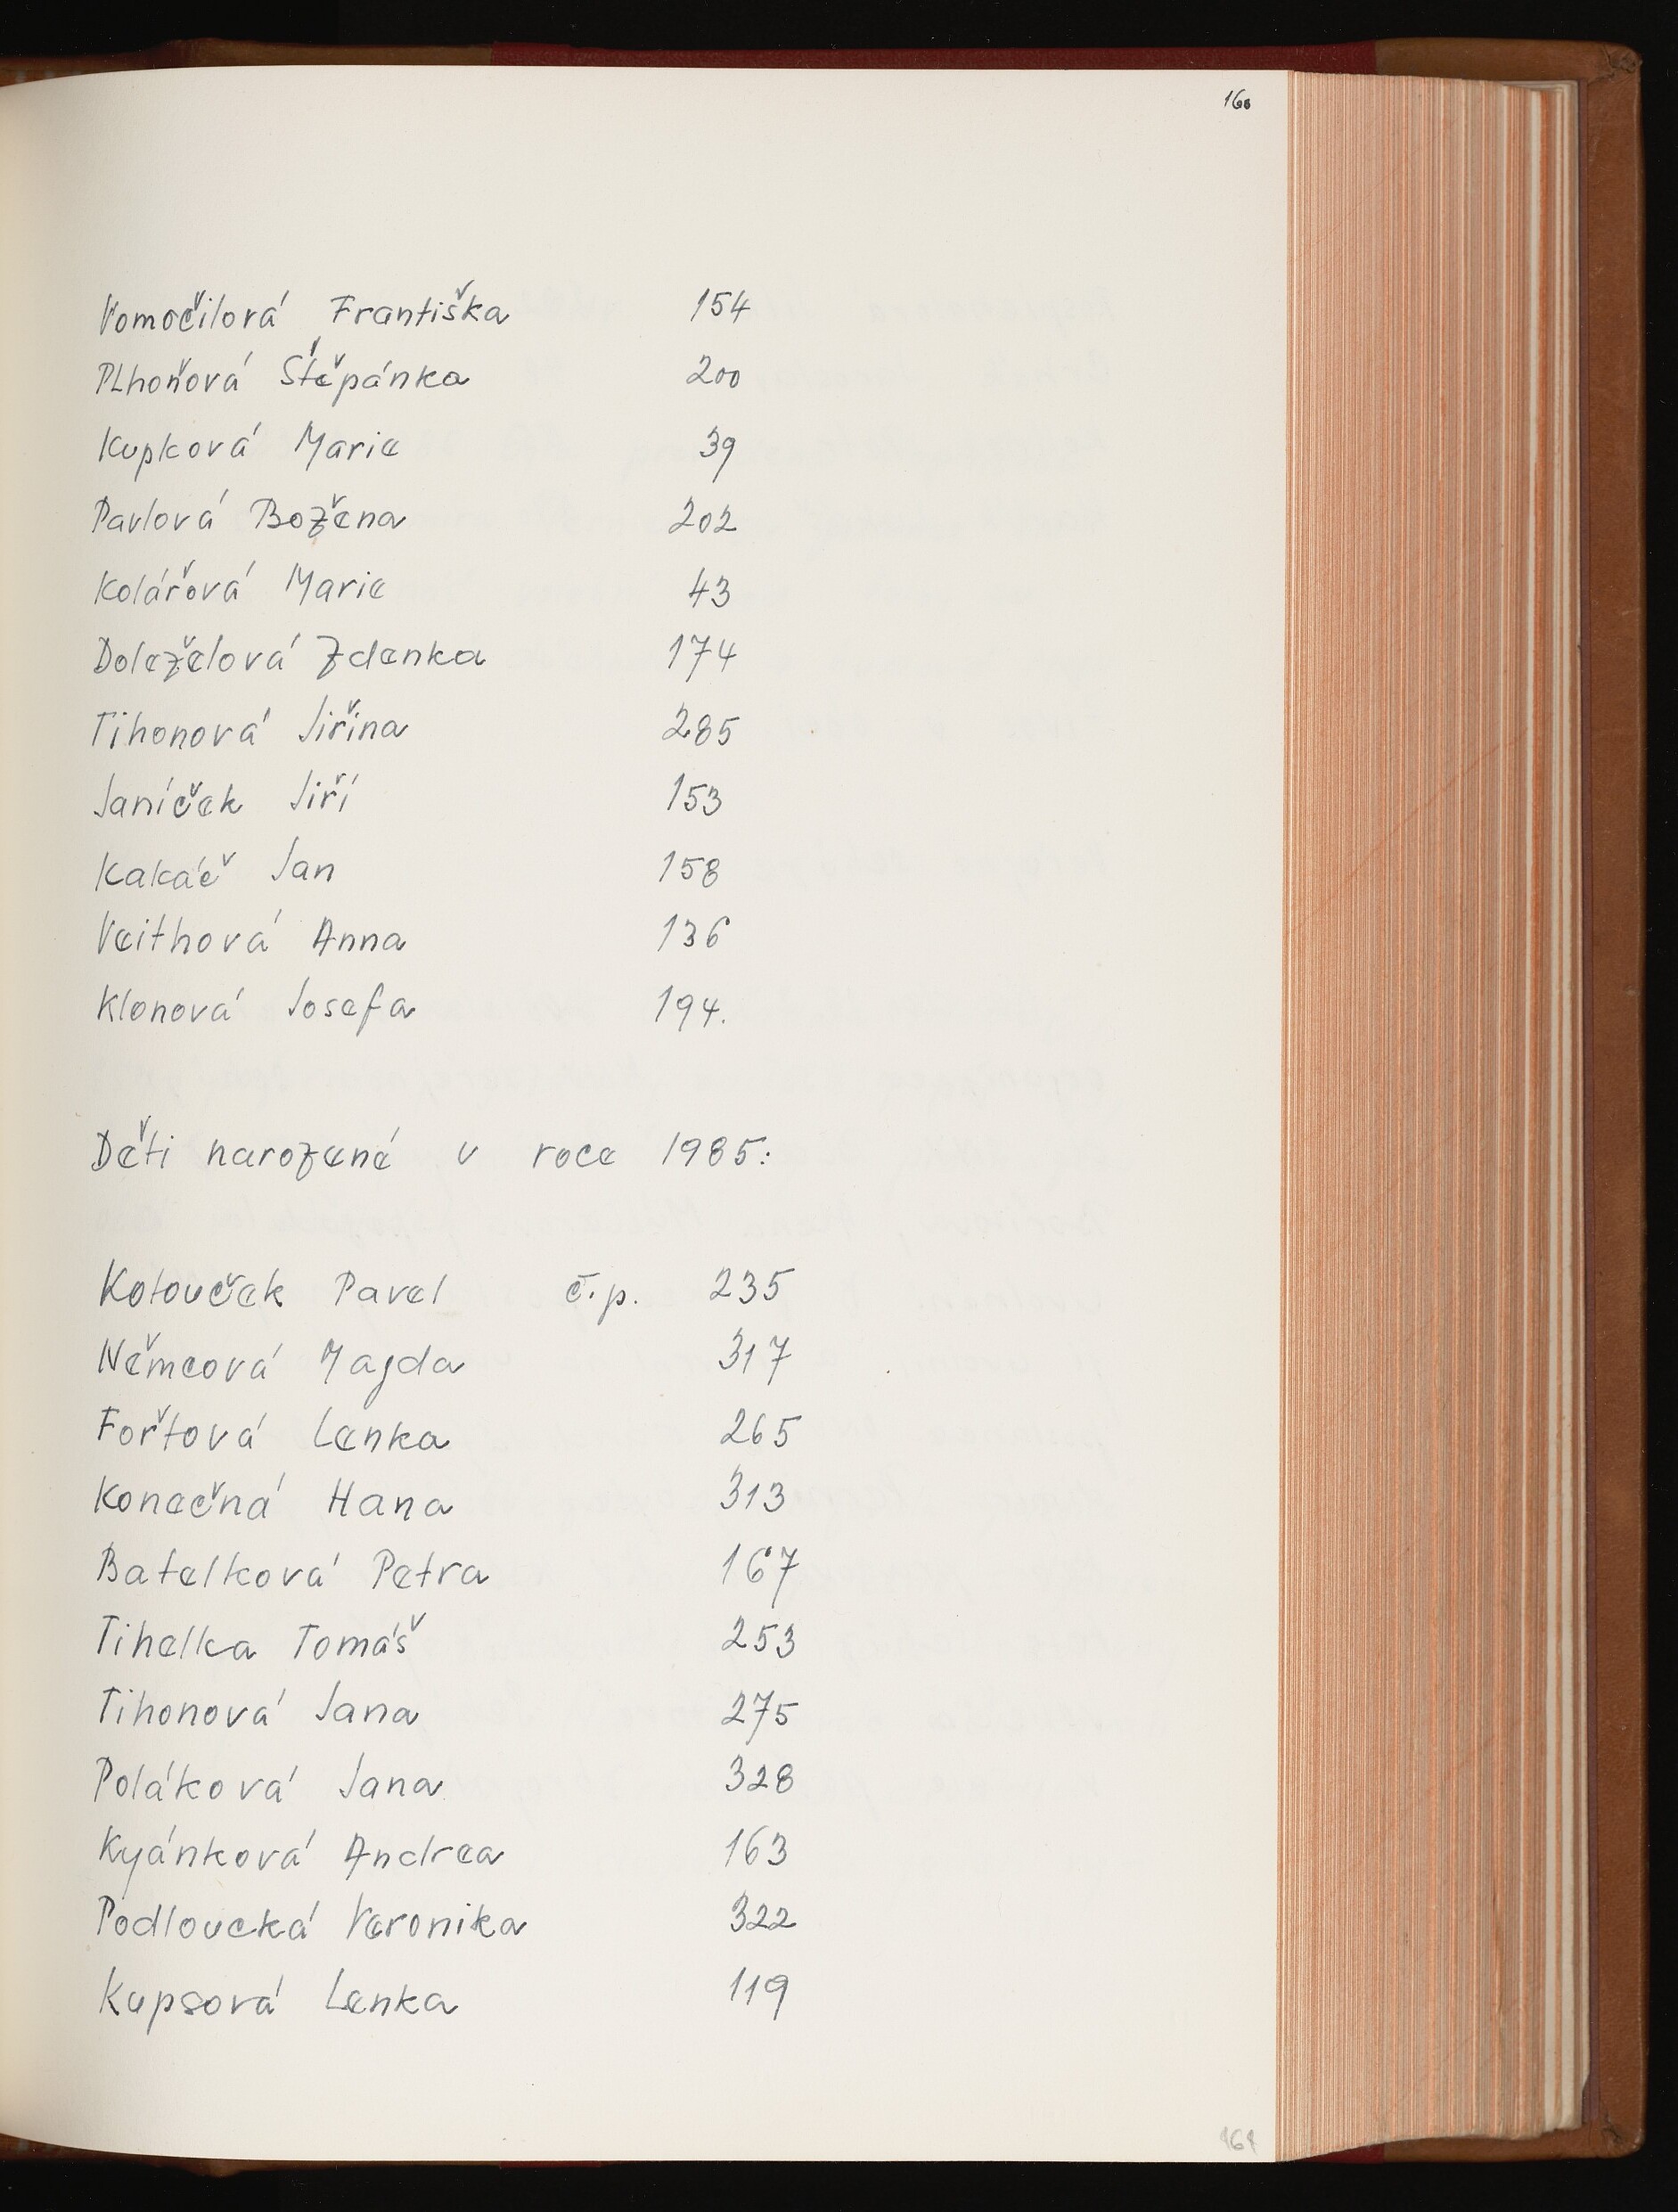 160
Vomočilová Františka 154
Plhoňová Štěpánka 200
Kupková Marie 39
Pavlová Božena 202
Kolářová Marie 43
Doleželová Zdenka 174
Tihonová Jiřina 285
Janíček Jiří 153
Kakáč Jan 158
Veithová Anna 136
Klonová Josefa 194.
Děti narozené v roce 1985:
Kolouček Pavel č.p. 235
Němcová Magda 317
Fořtová Lenka 265
Konečná Hana 313
Batelková Petra 167
Tihelka Tomáš 253
Tihonová Jana 275
Poláková Jana 328
Kyánková Andrea 163
Podloucká Veronika 322
Kupsová Lenka 119
161